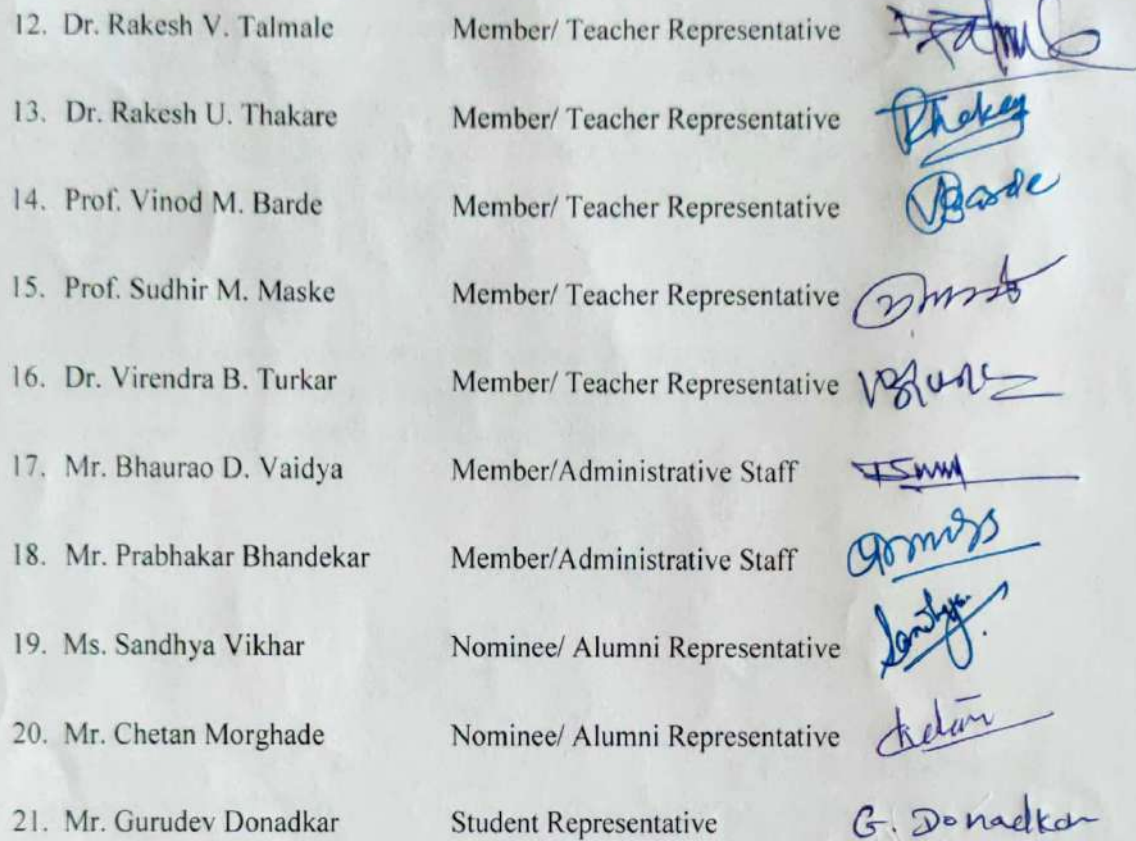 12. Dr. Rakesh V. Talmale Member/ Teacher Representative
13. Dr. Rakesh U. Thakare Member/ Teacher Representative
14. Prof. Vinod M. Barde Member/ Teacher Representative VBarde
15. Prof. Sudhir M. Maske Member/ Teacher Representative
16. Dr. Virendra B. Turkar Member/ Teacher Representative
17. Mr. Bhaurao D. Vaidya Member/Administrative Staff
18. Mr. Prabhakar Bhandekar Member/Administrative Staff
19. Ms. Sandhya Vikhar Nominee/ Alumni Representative Sandhya
20. Mr. Chetan Morghade Nominee/ Alumni Representative Chetan
21. Mr. Gurudev Donadkar Student Representative G. Donadkar